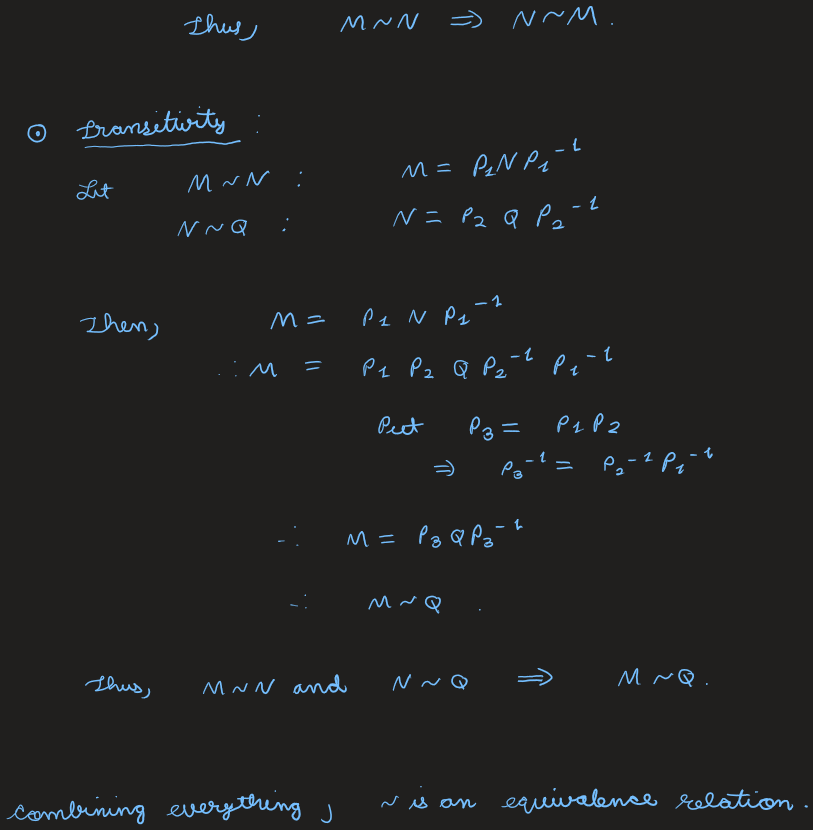 Thus, M ~ N ⇒ N ~ M.
⊙ Transitivity :
Let M ~ N : M = P₁ N P₁⁻¹
N ~ Q : N = P₂ Q P₂⁻¹
Then, M = P₁ N P₁⁻¹
∴ M = P₁ P₂ Q P₂⁻¹ P₁⁻¹
Put P₃ = P₁ P₂
⇒ P₃⁻¹ = P₂⁻¹ P₁⁻¹
∴ M = P₃ Q P₃⁻¹
∴ M ~ Q .
Thus, M ~ N and N ~ Q ⇒ M ~ Q.
combining everything, ~ is an equivalence relation.